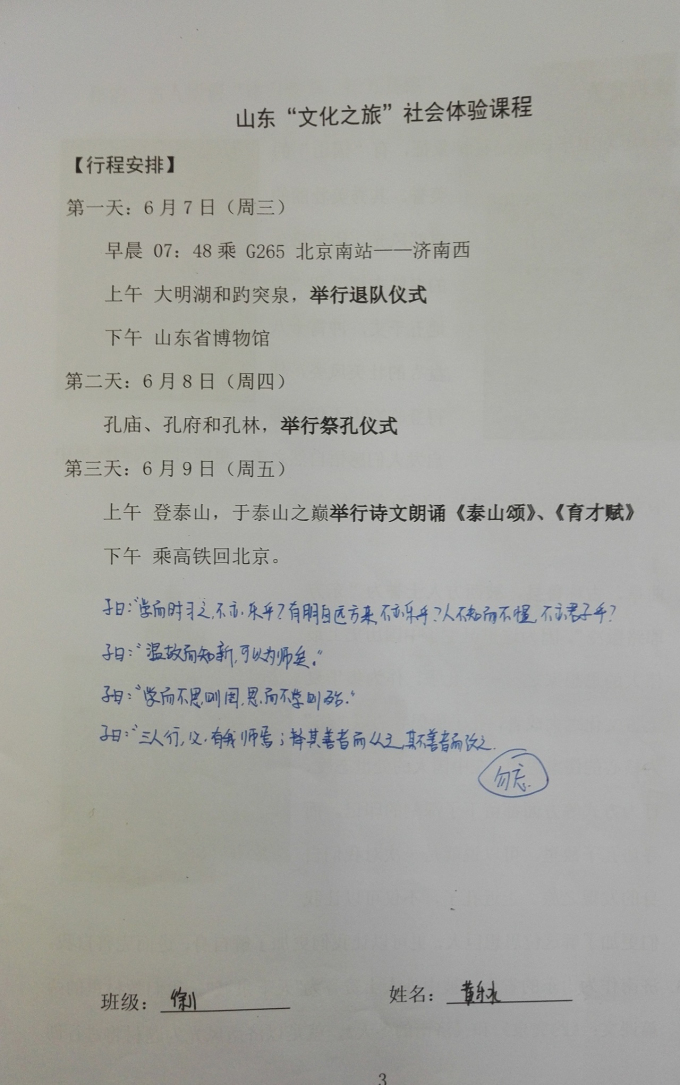 山东“文化之旅”社会体验课程
【行程安排】
第一天：6月7日（周三）
早晨 07：48乘 G265 北京南站——济南西
上午 大明湖和趵突泉，举行退队仪式
下午 山东省博物馆
第二天：6月8日（周四）
孔庙、孔府和孔林，举行祭孔仪式
第三天：6月9日（周五）
上午 登泰山，于泰山之巅举行诗文朗诵《泰山颂》、《育才赋》
下午 乘高铁回北京。
子曰：“学而时习之，不亦乐乎？有朋自远方来，不亦乐乎？人不知而不愠，不亦君子乎？
子曰：“温故而知新，可以为师矣。”
子曰：“学而不思则罔，思而不学则殆。”
子曰：“三人行，必有我师焉；择其善者而从之，其不善者而改之。
勿忘。
班级：
姓名：
3